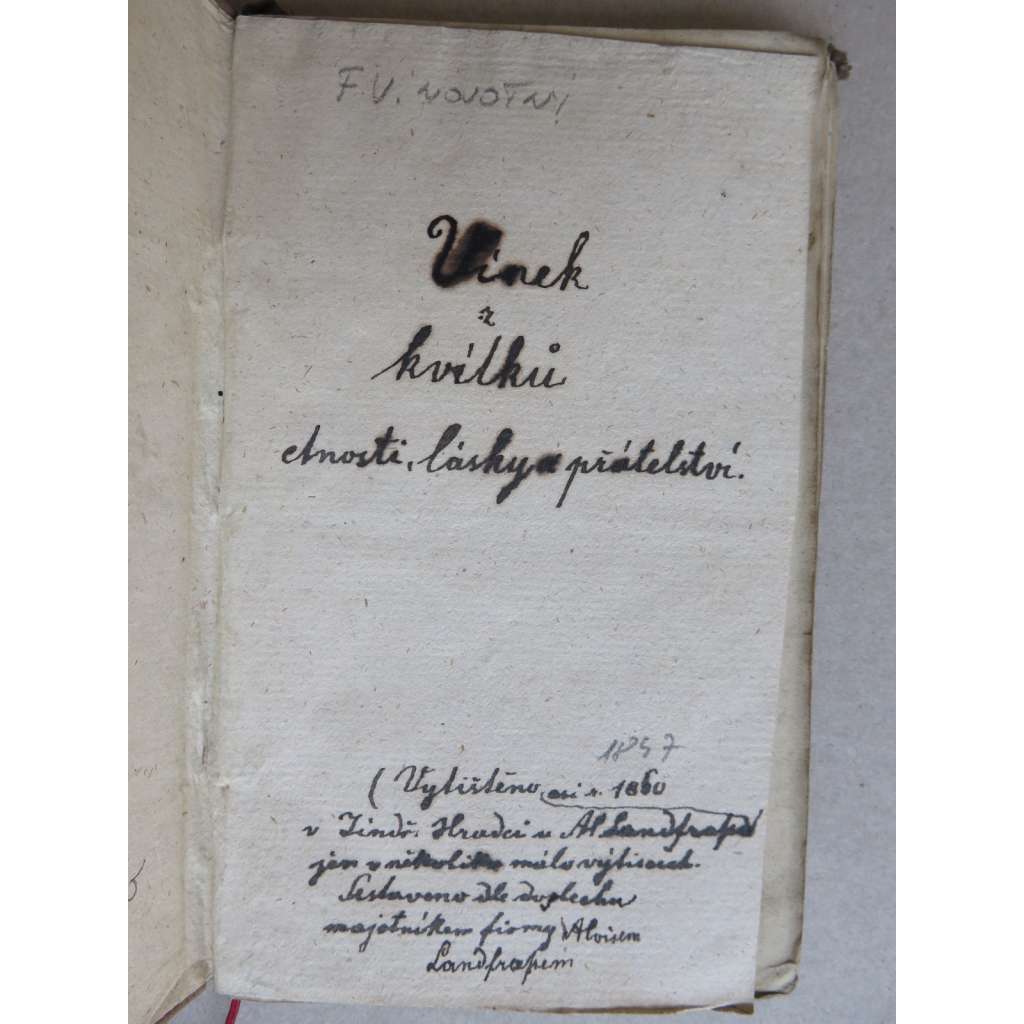 F. V. NOVOTNÝ
Vínek
z
kvítků
ctnosti, lásky a přátelství.
1857
( Vytištěno asi r. 1860
v Jindř. Hradci u Al Landfrasa
jen v několika málo výtiscích.
Sestaveno dle doslechu
majetníkem firmy Aloisem
Landfrasem